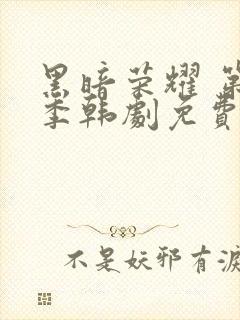 黑暗荣耀 第
季韩劇免費
不是妖邪有淚